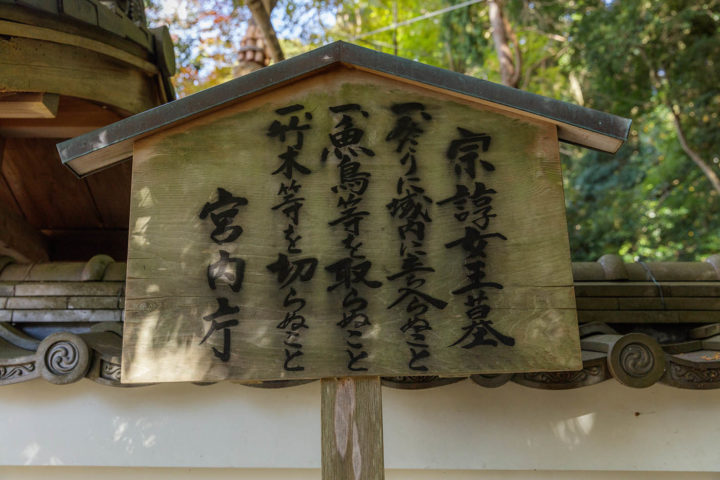 宗諄女王墓
一、みだりに域内に立入らぬこと
一、魚鳥等を取らぬこと
一、竹木等を切らぬこと
宮内庁